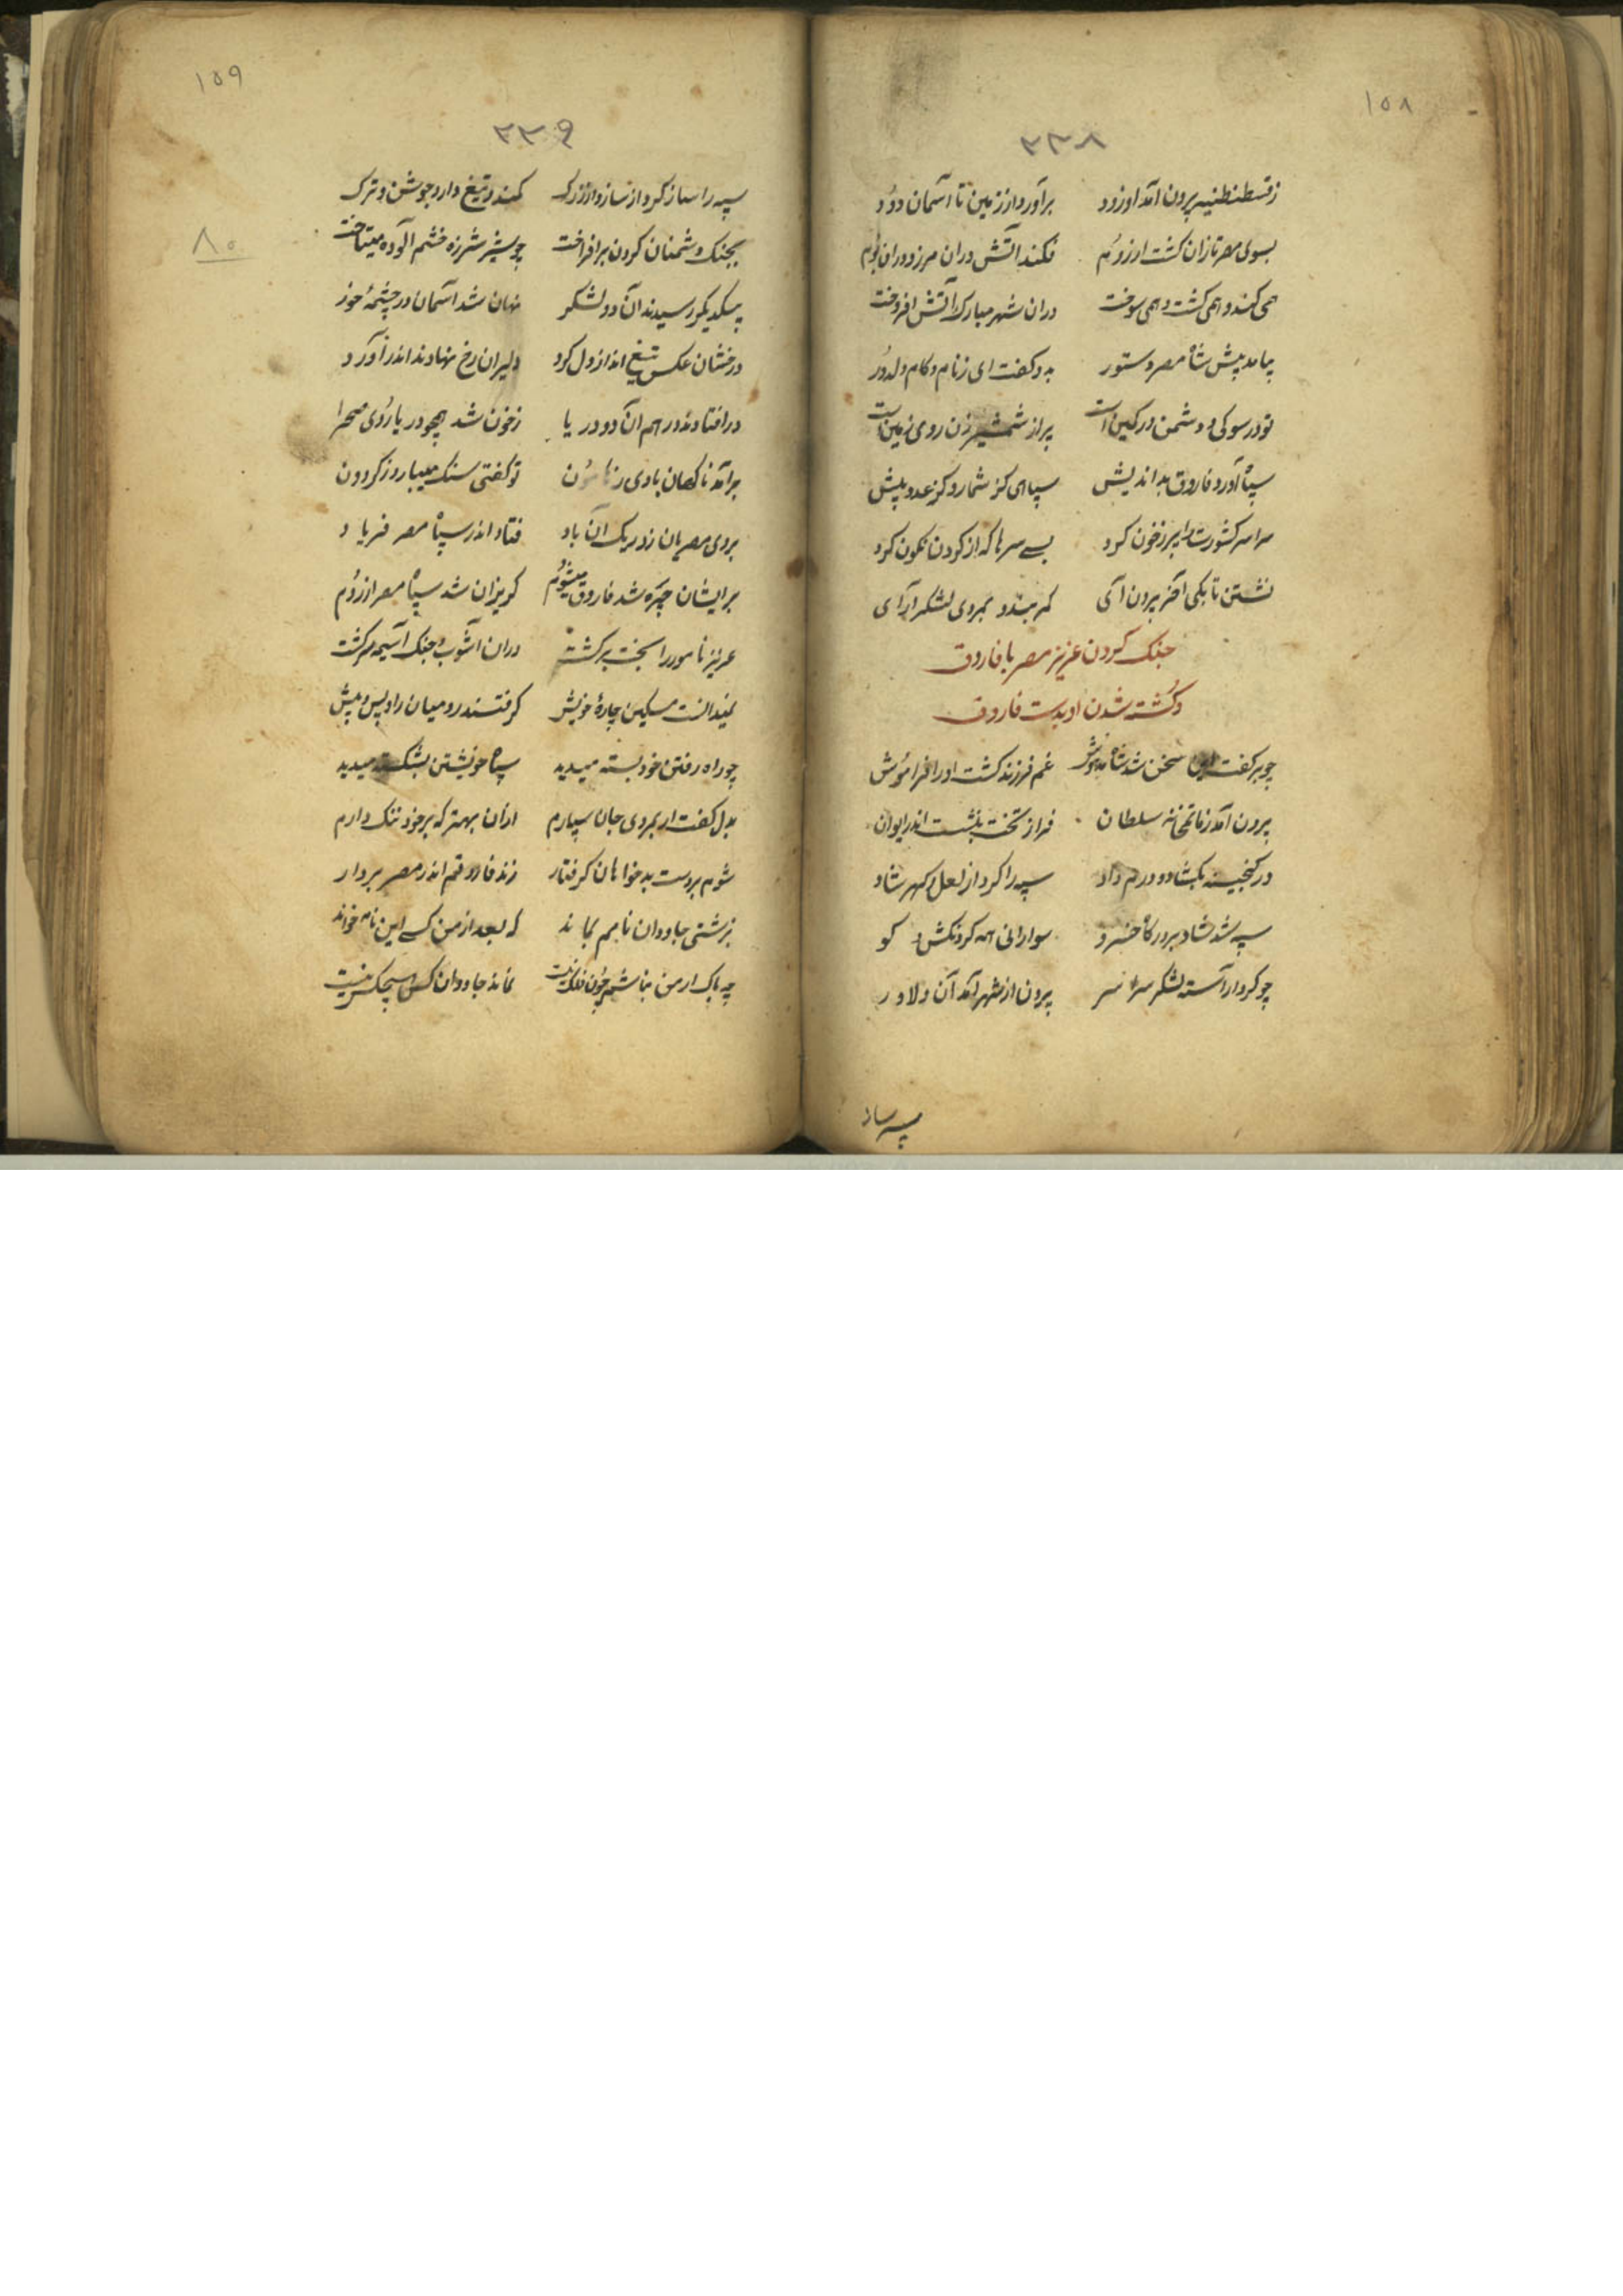 ۱۵۸
۳۳۸
ز قسطنطنیه بیرون آمد او زود برآورد از زمین تا آسمان دود
بسوی مصر تازان کشت از روم فکند آتش دران مرز و دران بوم
همی کند و همی کشت و همی سوخت دران شهر مبارک آتش افروخت
بیامد پیش شاه مصر دستور بدو کفت ای ز نام و کام دل دور
تو در سوکی و دشمن در کمین است پر از شمشیر زن روی زمین است
سپاه آورد فاروق بداندیش سپاهی کز شمار و کز عدد بیش
سراسر کشورت را پر ز خون کرد بسے سرها که از کردن نکون کرد
نشستن تا بکی آخر برون آی کمر بند و بمردی لشکر آرای
جنک کردن عزیز مصر با فاروق
و کشته شدن او بدست فاروق
چو بر کفت این سخن شد شاه مدهوش غم فرزند کشت او را فراموش
برون آمد ز ماتمخانه سلطان فراز تخت بنشست اندر ایوان
در کنجینه بکشاد و درم داد سپه را کرد از لعل و کهر شاد
سپه شد شاد بر درکاه خسرو سوارانی همه کردنکش و کو
چو کرد آراسته لشکر سراسر برون از شهر آمد آن دلاور
سپه را ساز
۱۵۹
۳۳۹
۸۰
سپه را ساز کرد از ساز و از برک کمند و تیغ داد و جوشن و ترک
بجنک دشمنان کردن برافراخت چو شیر شرزه خشم آلوده میتاخت
بیکدیکر رسیدند آن دو لشکر نهان شد آسمان در چشمهٔ خور
درخشان عکس تیغ انداز دل کرد دلیران رخ نهادند اندر آورد
در افتادند در هم آن دو دریا ز خون شد همچو دریا روی صحرا
برآمد ناکهان بادی ز هامون تو کفتی سنک میبارد ز کردون
بروی مصریان زد ریک آن باد فتاد اندر سپاه مصر فریاد
بر ایشان چیره شد فاروق میشوم کریزان شد سپاه مصر از روم
عزیز نامور را بخت برکشت دران آشوب و جنک آسیمه سرکشت
نمیدانست مسکین چارهٔ خویش کرفتند رومیان را و پس و پیش
چو راه رفتن خود بسته میدید سپاه خویشتن بشکسته میدید
بدل کفت ار بمردی جان سپارم ازان بهتر که بر خود ننک دارم
شوم بر دست بدخواهان کرفتار زند فاروقم اندر مصر بر دار
بزشتی جاودان نامم بماند که بعد از من کسے این نامه خواند
چه باک ار من نباشم چون فلک نیست نماند جاودان کس هیچکس نیست